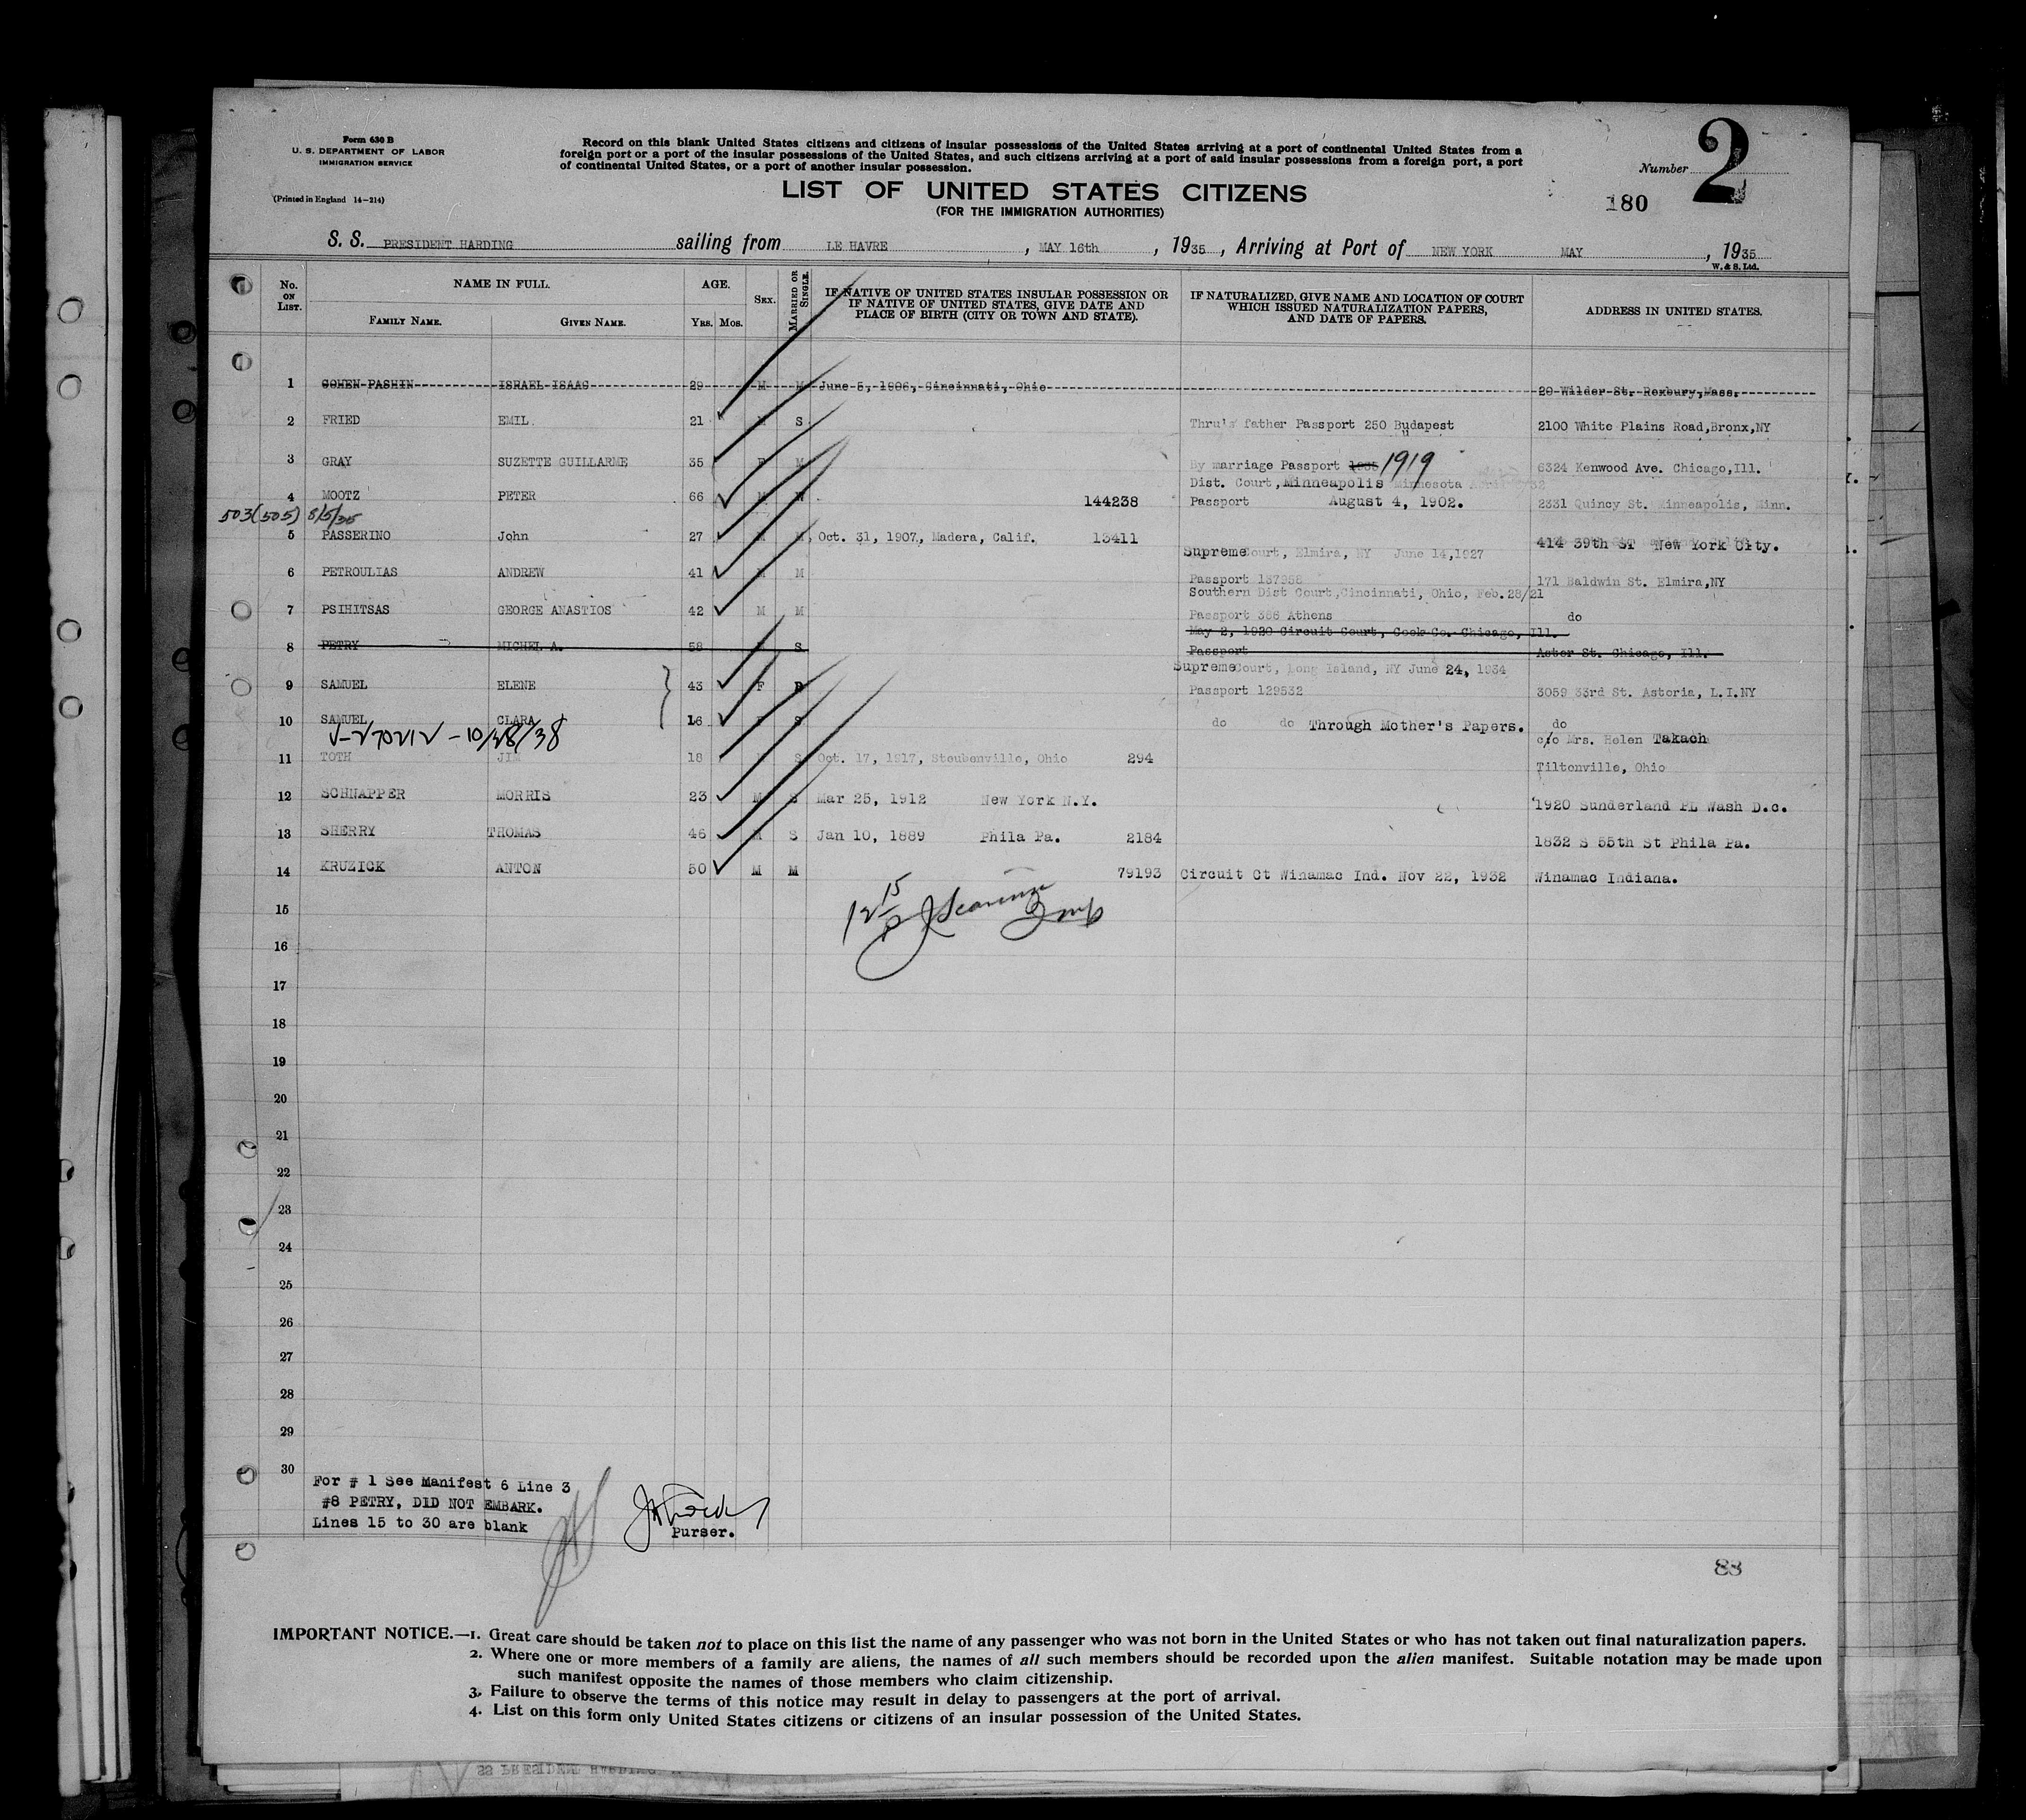 Form 630 B
U. S. DEPARTMENT OF LABOR
IMMIGRATION SERVICE
(Printed in England 14-214)
Record on this blank United States citizens and citizens of insular possessions of the United States arriving at a port of continental United States from a
foreign port or a port of the insular possessions of the United States, and such citizens arriving at a port of said insular possessions from a foreign port, a port
of continental United States, or a port of another insular possession.
LIST OF UNITED STATES CITIZENS
(FOR THE IMMIGRATION AUTHORITIES)
Number 2
180
S. S. PRESIDENT HARDING sailing from LE HAVRE, MAY 16th, 1935, Arriving at Port of NEW YORK MAY, 1935
W. & S. Ltd.
No. ON LIST. NAME IN FULL. FAMILY NAME. GIVEN NAME. AGE. YRS. MOS. SEX. MARRIED OR SINGLE. IF NATIVE OF UNITED STATES INSULAR POSSESSION OR IF NATIVE OF UNITED STATES, GIVE DATE AND PLACE OF BIRTH (CITY OR TOWN AND STATE). IF NATURALIZED, GIVE NAME AND LOCATION OF COURT WHICH ISSUED NATURALIZATION PAPERS, AND DATE OF PAPERS. ADDRESS IN UNITED STATES.
1 COHEN PASHIN ISRAEL ISAAC 29 M M June 5, 1906, Cincinnati, Ohio 20 Wilder St. Roxbury, Mass.
2 FRIED EMIL 21 S Thru's father Passport 250 Budapest 2100 White Plains Road, Bronx, NY
3 GRAY SUZETTE GUILLARME 35 F M By marriage Passport 1919 6324 Kenwood Ave. Chicago, Ill.
Dist. Court, Minneapolis Minnesota
4 MOOTZ PETER 66 M W 144238 Passport August 4, 1902. 2331 Quincy St. Minneapolis, Minn.
503(505) 8/5/35
5 PASSERINO John 27 M Oct. 31, 1907, Madera, Calif. 13411 414 39th ST New York City.
Supreme Court, Elmira, NY June 14, 1927
6 PETROULIAS ANDREW 41 M M Passport 137958 171 Baldwin St. Elmira, NY
Southern Dist Court, Cincinnati, Ohio, Feb. 28/21
7 PSIHITSAS GEORGE ANASTIOS 42 M M Passport 386 Athens do
May 2, 1920 Circuit Court, Cook Co. Chicago, Ill.
8 PETRY MICHEL A. 58 S Passport Astor St. Chicago, Ill.
Supreme Court, Long Island, NY June 24, 1934
9 SAMUEL ELENE 43 F D Passport 129532 3059 33rd St. Astoria, L.I. NY
10 SAMUEL CLARA 16 F S do do Through Mother's Papers. do
10/28/38
c/o Mrs. Helen Takach
11 TOTH JIM 18 S Oct. 17, 1917, Steubenville, Ohio 294 Tiltonville, Ohio
12 SCHNAPPER MORRIS 23 M S Mar 25, 1912 New York N.Y. 1920 Sunderland PL Wash D.c.
13 SHERRY THOMAS 46 M S Jan 10, 1889 Phila Pa. 2184 1832 S 55th St Phila Pa.
14 KRUZICK ANTON 50 M M 79193 Circuit Ct Winamac Ind. Nov 22, 1932 Winamac Indiana.
15
16
17
18
19
20
21
22
23
24
25
26
27
28
29
30
For # 1 See Manifest 6 Line 3
#8 PETRY, DID NOT EMBARK.
Lines 15 to 30 are blank
Purser.
88
IMPORTANT NOTICE.—1. Great care should be taken not to place on this list the name of any passenger who was not born in the United States or who has not taken out final naturalization papers.
2. Where one or more members of a family are aliens, the names of all such members should be recorded upon the alien manifest. Suitable notation may be made upon
such manifest opposite the names of those members who claim citizenship.
3. Failure to observe the terms of this notice may result in delay to passengers at the port of arrival.
4. List on this form only United States citizens or citizens of an insular possession of the United States.